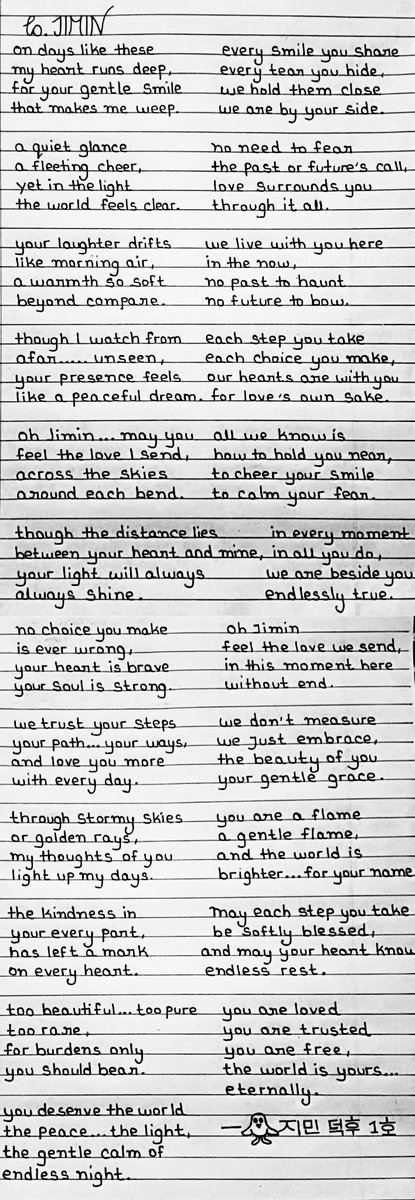 to. JIMIN
on days like these
my heart runs deep,
for your gentle smile
that makes me weep.
a quiet glance
a fleeting cheer,
yet in the light
the world feels clear.
your laughter drifts
like morning air,
a warmth so soft
beyond compare.
though I watch from
afar..... unseen,
your presence feels
like a peaceful dream.
oh Jimin... may you
feel the love I send,
across the skies
around each bend.
though the distance lies
between your heart and mine,
your light will always
always shine.
no choice you make
is ever wrong,
your heart is brave
your soul is strong.
we trust your steps
your path... your ways,
and love you more
with every day.
through stormy skies
or golden rays,
my thoughts of you
light up my days.
the kindness in
your every part,
has left a mark
on every heart.
too beautiful... too pure
too rare,
for burdens only
you should bear.
you deserve the world
the peace... the light,
the gentle calm of
endless night.
every smile you share
every tear you hide,
we hold them close
we are by your side.
no need to fear
the past or future's call,
love surrounds you
through it all.
we live with you here
in the now,
no past to haunt
no future to bow.
each step you take
each choice you make,
our hearts are with you
for love's own sake.
all we know is
how to hold you near,
to cheer your smile
to calm your fear.
in every moment
in all you do,
we are beside you
endlessly true.
oh Jimin
feel the love we send,
in this moment here
without end.
we don't measure
we just embrace,
the beauty of you
your gentle grace.
you are a flame
a gentle flame,
and the world is
brighter... for your name
may each step you take
be softly blessed,
and may your heart know
endless rest.
you are loved
you are trusted
you are free,
the world is yours...
eternally.
— 지민 덕후 1호